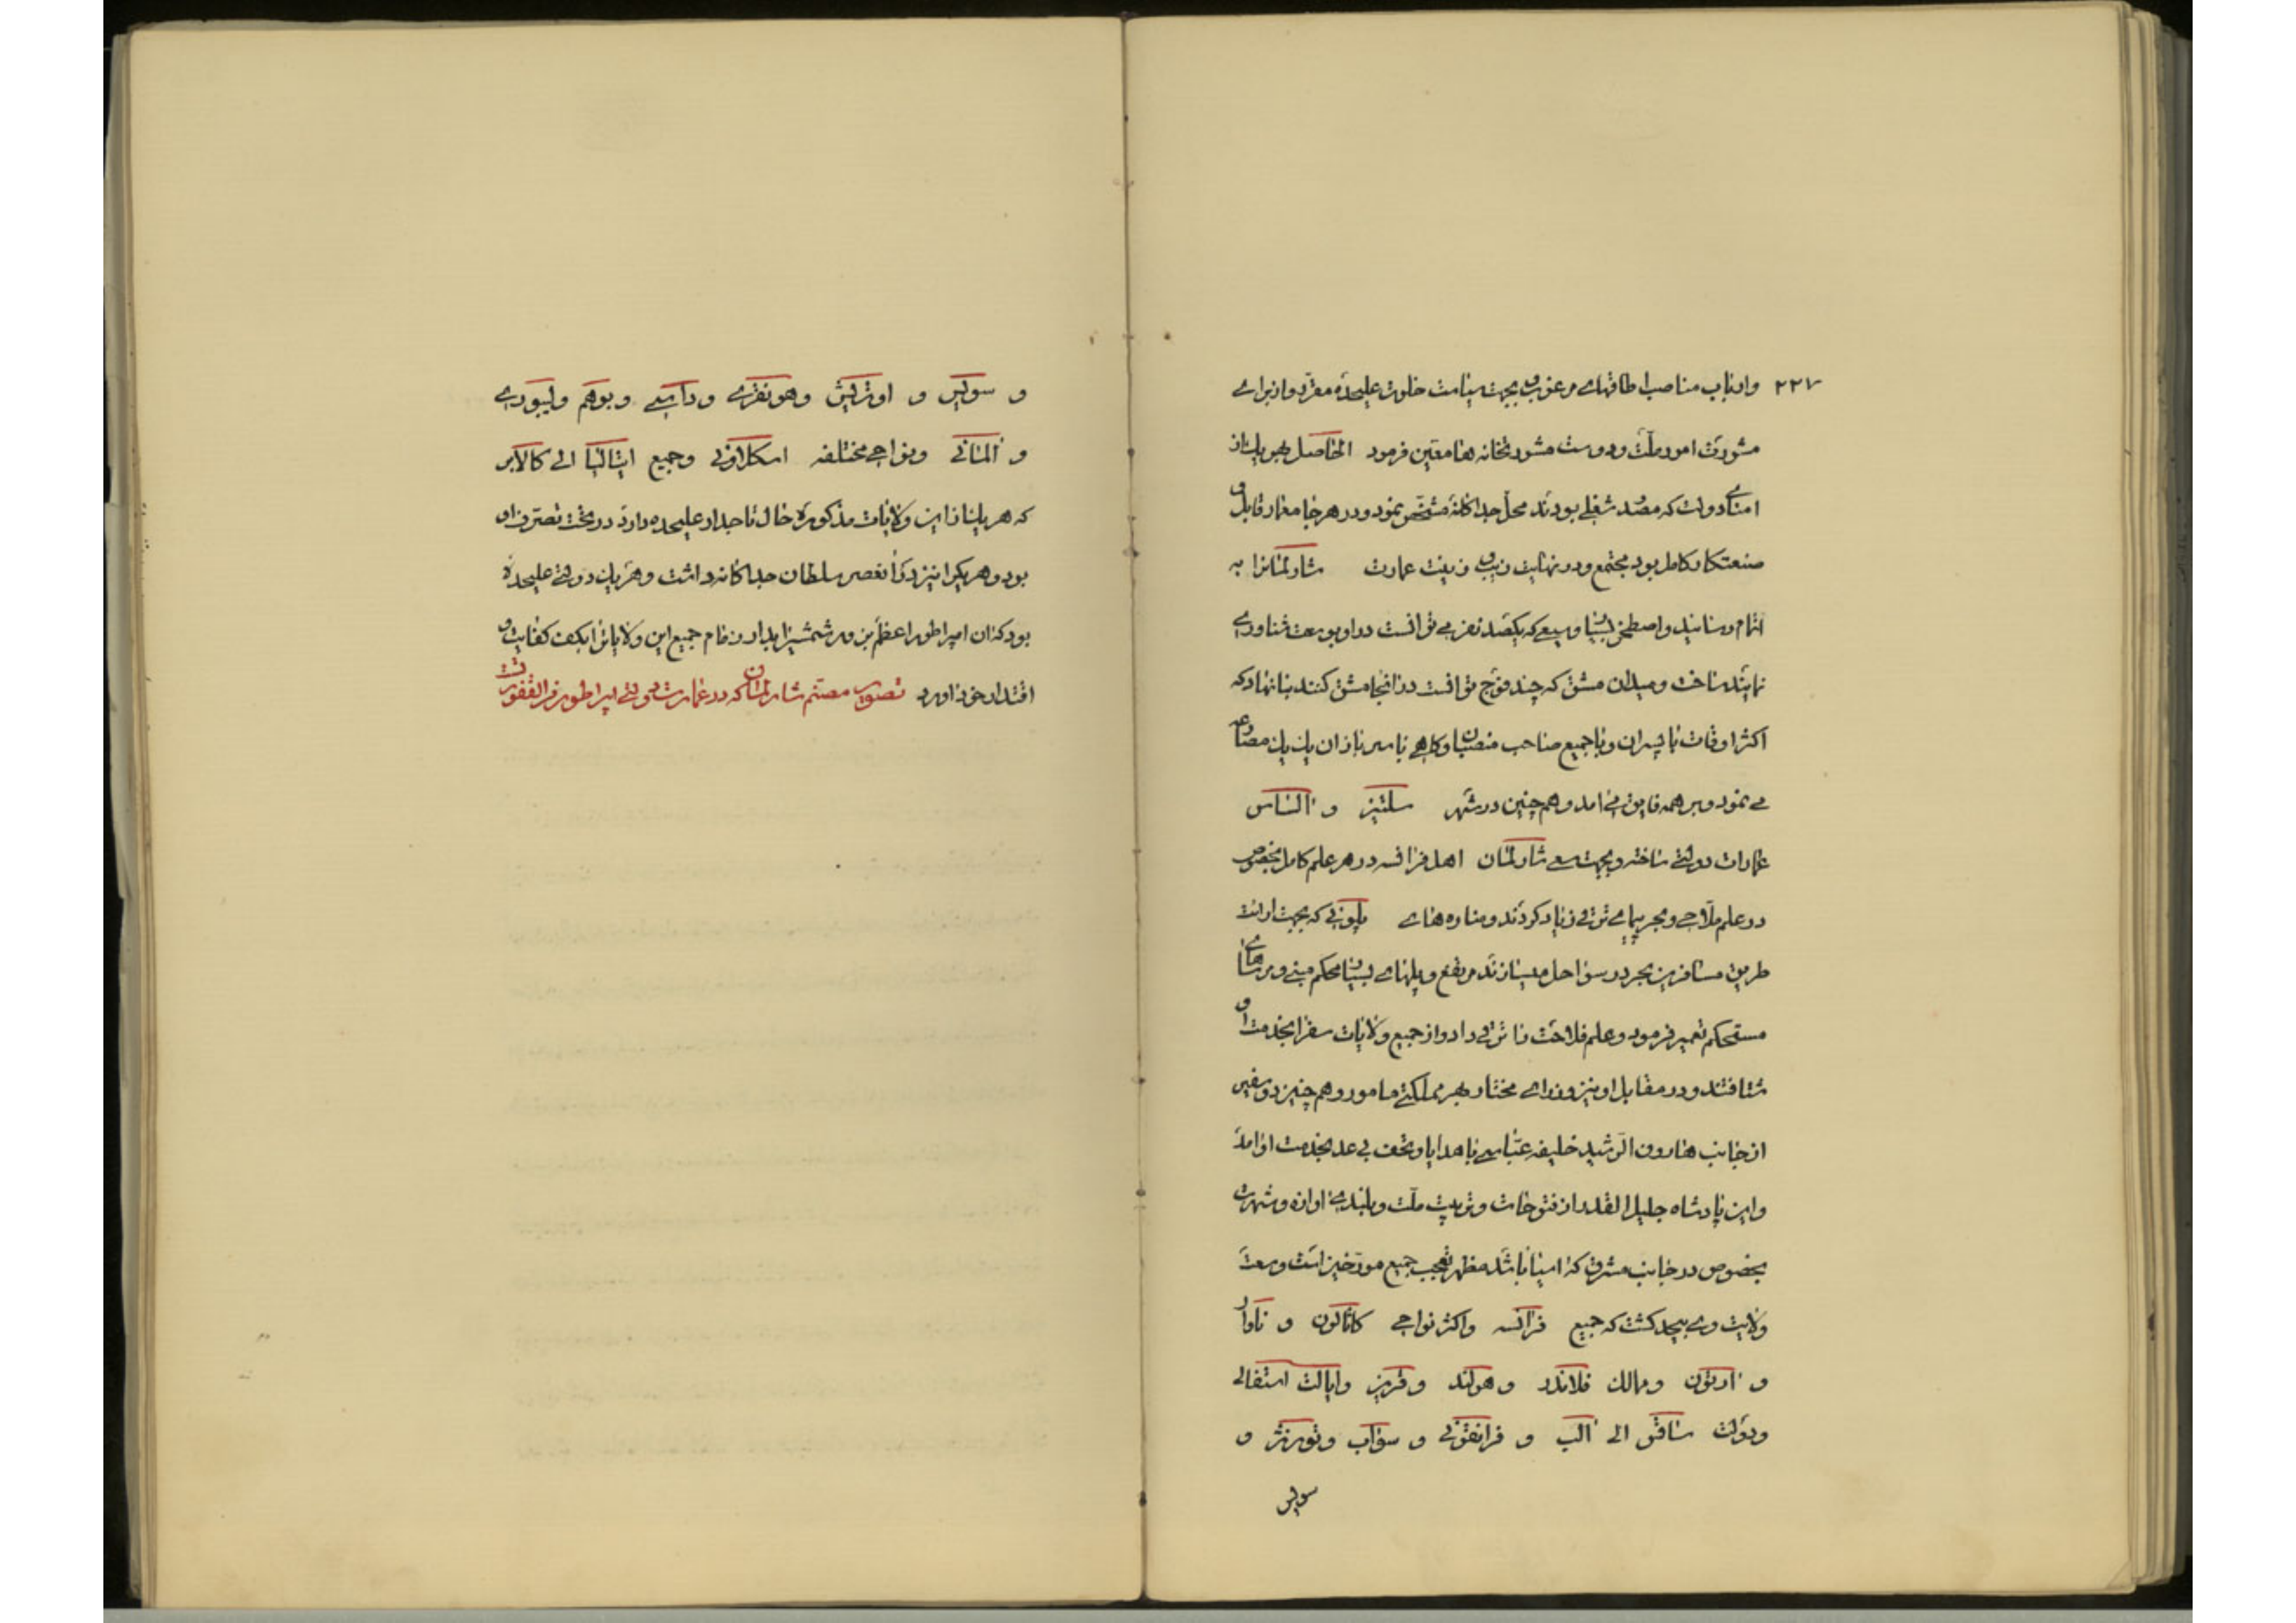 ۲۲۷ وارباب مناصب اطاقهای مرغوب بجهت خلوت علیحده مقرر و از برای
مشورت امور ملت و دولت مشورتخانه ها معین فرمود الحاصل بهر یک از
امنای دولت که مصدر شغلی بودند محل جداگانه مشخص نمود و در هر جا معمار قابل و
صنعتکار کامل بود مجتمع و در نهایت زیب و زینت عمارت شارلمانرا به
اتمام رسانید و اصطخر بسیار وسیع که یکصد نفر می توانست در او بوسعت شناوری
نمایند ساخت و میدان مشق که چند فوج توانست در آنجا مشق کنند بنا نهاد که
اکثر اوقات با پسران و با جمیع صاحب منصبان و کاهی با سربازان یک یک مصارعه
می نمود و بر همه فایق می آمد و هم چنین در شهر سلتیز و الساس
عمارات دولتی ساخته و بجهت سعی شارلمان اهل فرانسه در هر علم کامل بخصوص
در علم ملاحی و بحر پیمایی ترقی زیاد کردند و مناره های که بجهت ارائت
طریق مسافرین بحر در سواحل میسازند مرتفع و پلهای بسیار محکم مبنی و مرساهای
مستحکم تعمیر فرمود و علم فلاحت را ترقی داد و از جمیع ولایات سفرا بخدمت او
شتافتند و در مقابل او نیز وزرای مختار بهر مملکتی مامور و هم چنین دو سفیر
از جانب هارون الرشید خلیفه عباسی با هدایا و تحف بی عد بخدمت او آمد
و این پادشاه جلیل القدر از فتوحات و تربیت ملت و بلندی آوازه و شهرت
بخصوص در جانب مشرق که آسیا باشد مظهر تعجب جمیع مورخین است وسعت
ولایت وی بیحد کشت که جمیع فرانسه و اکثر نواحی کاتالون و ناوار
و اراتون و ممالک فلاندر و هولند و فریز و ایالت استفالی
و دولت ساقس الی الب و فرانقونی و سواب و تورنژ و
سویس
و سویس و اوتریش و هونقری و داسی و بوهم و لیبوری
و المانی و نواحی مختلفه اسکلاونی و جمیع ایتالیا الی کالابر
که هر یک از این ولایات مذکوره حال تاجدار علیحده دارد در تحت تصرف او
بود و هر یکرا نیز در آنعصر سلطان جداگانه داشت و هر یک دولتی علیحده
بود که آن امپراطور اعظم بزور شمشیر آبدار زمام جمیع این ولایاترا بکف کفایت و
اقتدار خود آورد تصویر مصنم شارلمان که در عمارت دولتی امپراطور فرانقفورت